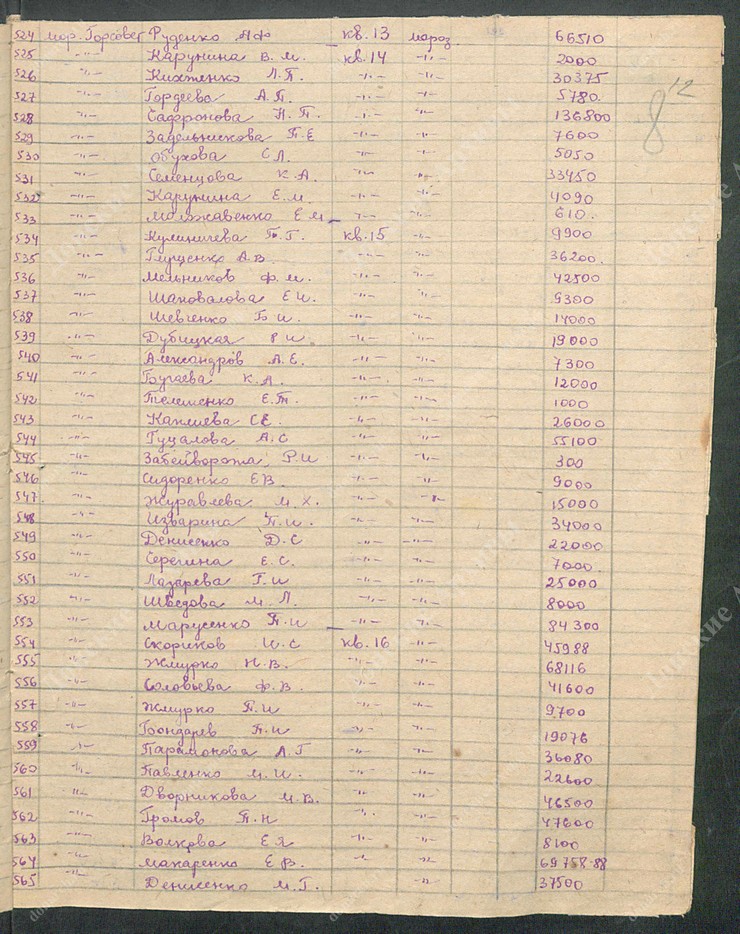 524 мор. Горсовет Руденко А Ф кв. 13 мороз. 66510
525 -"- Карунина В. М. кв. 14 -"- 2000
526 -"- Книженко Л. П. -"- -"- 30375
527 -"- Гордеева А. П. -"- -"- 5780.
528 -"- Сафронова Н. П. -"- -"- 136800
529 -"- П. Е -"- -"- 7600
530 -"- Обухова С Л. -"- -"- 5050
531 -"- Семенцова К. А. -"- -"- 33450
532 -"- Карунина Е. М. -"- -"- 4090
533 -"- Молжавенко Е М -"- -"- 610.
534 -"- Кулиничева П. Г. кв. 15 -"- 9900
535 -"- Глущенко А. В. -"- -"- 36200.
536 -"- Мельников Ф. М. -"- -"- 42500
537 -"- Шаповалова Е И. -"- -"- 9300
538 -"- Шевченко Б И. -"- -"- 14000
539 -"- Дубицкая Р И -"- -"- 19000
540 -"- Александров А. Е. -"- -"- 7300
541 -"- Бугаева К. А. -"- -"- 12000
542 -"- Телешенко Е. Т. -"- -"- 1000
543 -"- Каплиева С Е. -"- -"- 26000
544 -"- Гуцалова А. С -"- -"- 55100
545 -"- Забейворота Р. И -"- -"- 300
546 -"- Сидоренко Е В. -"- -"- 9000
547 -"- Журавлева М. Х. -"- -"- 15000
548 -"- Изварина П. И. -"- -"- 34000
549 -"- Денисенко Д. С -"- -"- 22000
550 -"- Серегина Е. С. -"- -"- 7000
551 -"- Лазарева Г. И -"- -"- 25000
552 -"- Шведова М. Л. -"- -"- 8000
553 -"- Марусенко П. И -"- -"- 84300
554 -"- Скориков И. С кв. 16 -"- 45988
555 -"- Жмурко Н. В. -"- -"- 68116
556 -"- Соловьева Ф. В. -"- -"- 41600
557 -"- Жмурко П. И -"- -"- 9700
558 -"- Бондарев П. И -"- -"- 19076
559 -"- Парамонова А. Г -"- -"- 36080
560 -"- Павленко М. И. -"- -"- 22600
561 -"- Дворникова М. В. -"- -"- 46500
562 -"- Громов П. Н -"- -"- 47600
563 -"- Волкова Е Я -"- -"- 8100
564 -"- Макаренко Е В. -"- -"- 69758-88
565 -"- Денисенко М. Г. -"- 37500